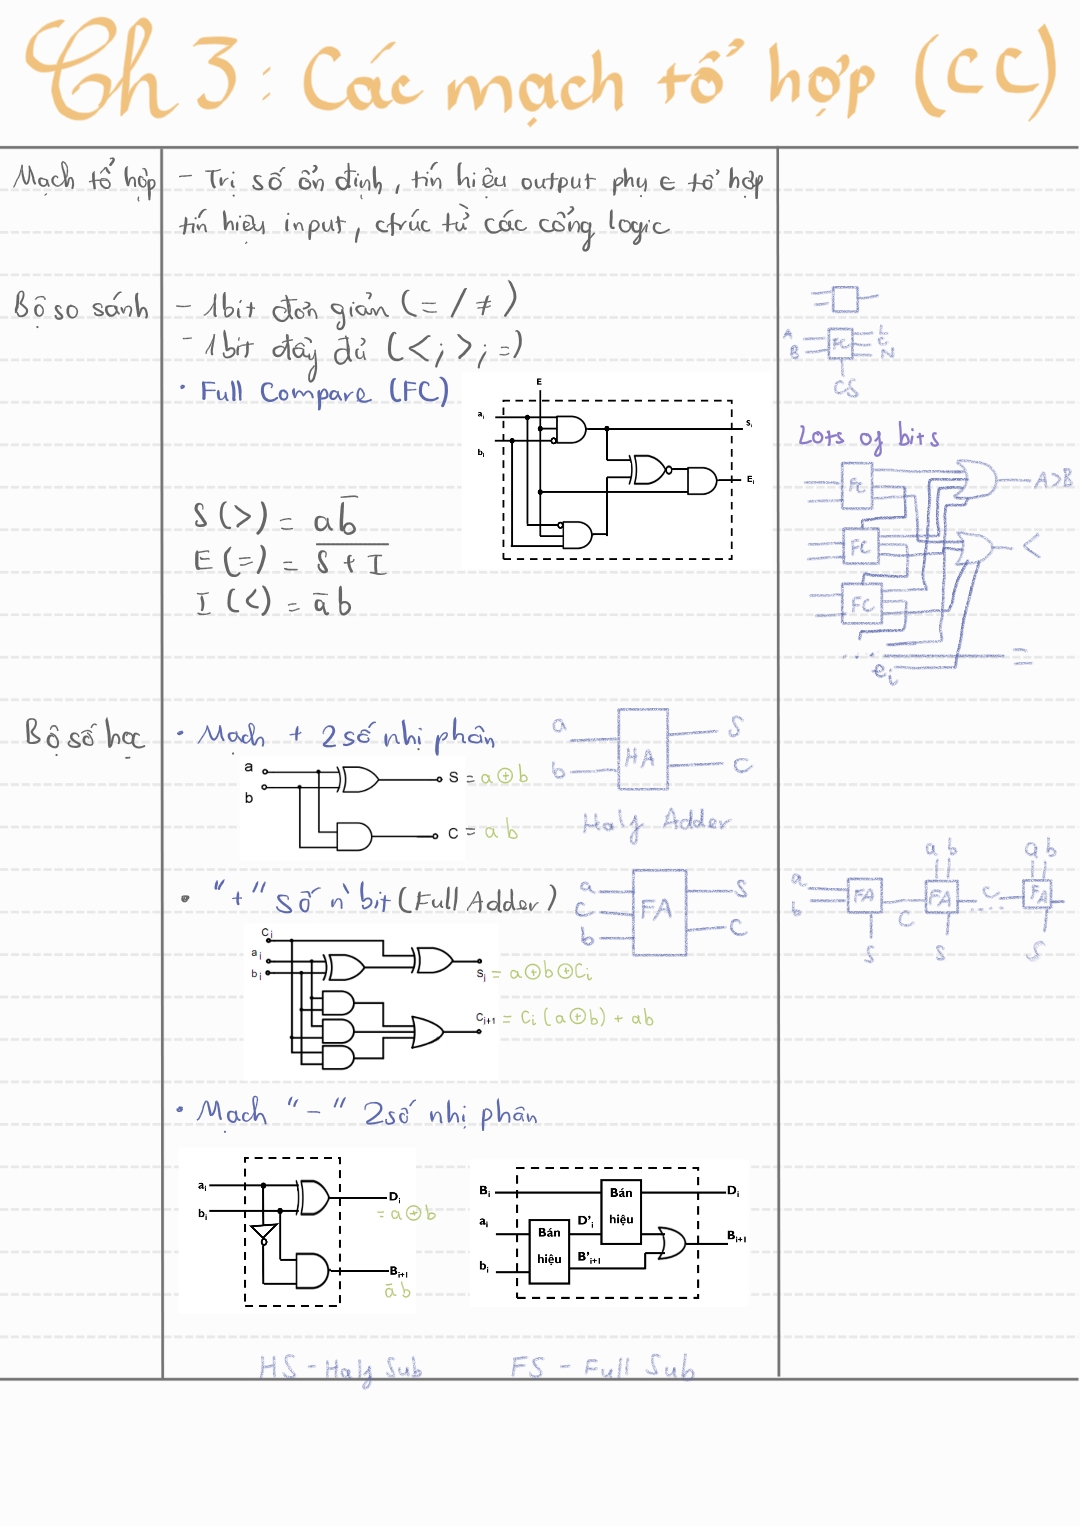 Ch 3 : Các mạch tổ hợp (CC)
Mạch tổ hợp
- Trị số ổn định, tín hiệu output phụ ∈ tổ hợp
tín hiệu input, ctrúc từ các cổng logic
Bộ so sánh
- 1bit đơn giản (= / ≠)
- 1bit đầy đủ (<; >; =)
• Full Compare (FC)
E
aᵢ
bᵢ
Sᵢ
Eᵢ
S (>) = ab̅
E (=) = \overline{S + I}
I (<) = a̅b
A
B
FC
L
C
N
CS
Lots of bits
FC
A>B
FC
<
FC
...
=
eᵢ
Bộ số học
• Mạch + 2 số nhị phân
a
b
S = a⊕b
C = ab
a
b
HA
S
C
Half Adder
• "+" số n bit (Full Adder)
Cᵢ
aᵢ
bᵢ
Sᵢ = a⊕b⊕Cᵢ
Cᵢ₊₁ = Cᵢ(a⊕b) + ab
a
C
b
FA
S
C
a
b
FA
S
C
a b
FA
S
C
....
a b
FA
S
• Mạch "-" 2 số nhị phân
aᵢ
bᵢ
Dᵢ
= a⊕b
Bᵢ₊₁
a̅b
Bᵢ
aᵢ
bᵢ
Bán
hiệu
D'ᵢ
B'ᵢ₊₁
Bán
hiệu
Dᵢ
Bᵢ₊₁
HS - Half Sub
FS - Full Sub